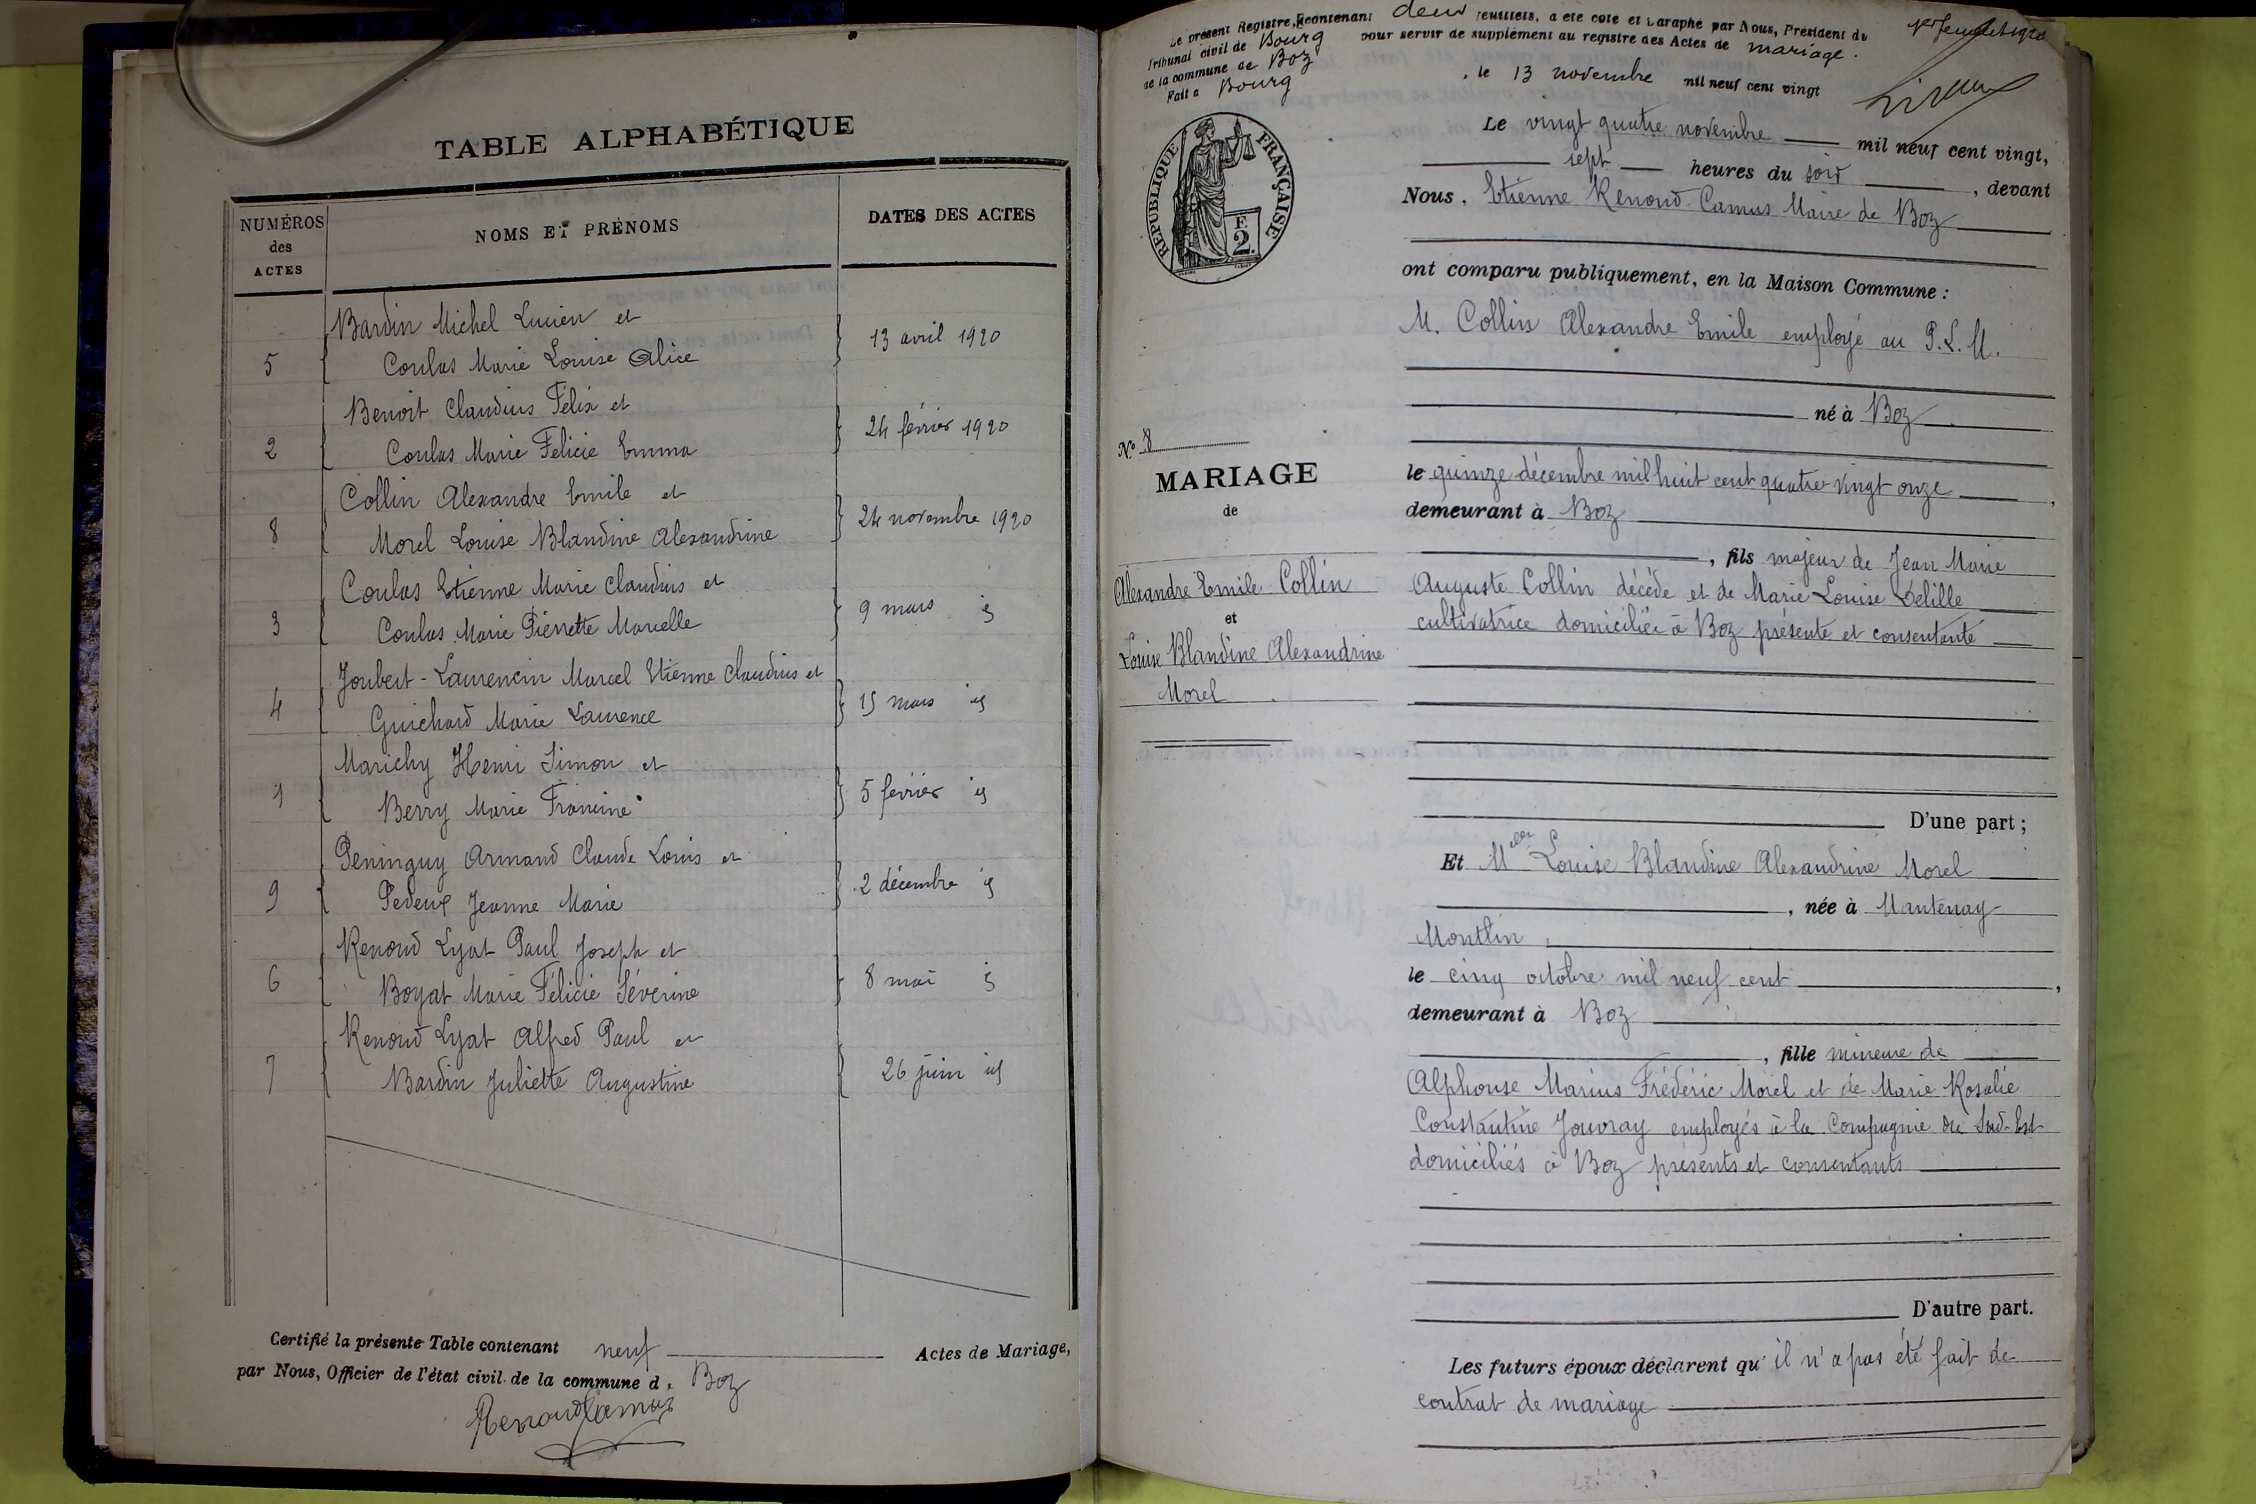 TABLE ALPHABÉTIQUE
NUMÉROS des ACTES
NOMS ET PRÉNOMS
DATES DES ACTES
Bardin Michel Lucien et
5 Coulas Marie Louise Alice 13 avril 1920
Benoit Claudius Félix et
2 Coulas Marie Félicie Emma 24 février 1920
Collin Alexandre Emile et
8 Morel Louise Blandine Alexandrine 24 novembre 1920
Coulas Etienne Marie Claudius et
3 Coulas Marie Pierrette Marcelle 9 mars id
Joubert-Laurencin Marcel Etienne Claudius et
4 Guichard Marie Laurence 15 mars id
Marichy Henri Simon et
1 Berry Marie Francine 5 février id
Peninguy Armand Claude Louis et
9 Pedeux Jeanne Marie 2 décembre id
Renoud Lyat Paul Joseph et
6 Boyat Marie Félicie Séverine 8 mai id
Renoud Lyat Alfred Paul et
7 Bardin Juliette Augustine 26 juin id
Certifié la présente Table contenant neuf Actes de Mariage,
par Nous, Officier de l'état civil de la commune d Boz
RenoudCamus
Le présent Registre, contenant deux feuillets, a été coté et paraphé par Nous, Président du
Tribunal civil de Bourg pour servir de supplément au registre des Actes de mariage.
de la commune de Boz
Fait à Bourg, le 13 novembre mil neuf cent vingt
1er feuillet 1920
RÉPUBLIQUE FRANÇAISE
F.
2.
Le vingt quatre novembre mil neuf cent vingt,
sept heures du soir, devant
Nous, Etienne Renoud-Camus Maire de Boz
ont comparu publiquement, en la Maison Commune :
M. Collin Alexandre Emile employé au P.L.M.
né à Boz
le quinze décembre mil huit cent quatre vingt onze,
demeurant à Boz
, fils majeur de Jean Marie
Auguste Collin décédé et de Marie Louise Delille
cultivatrice domiciliée à Boz présente et consentante
No 8
MARIAGE
de
Alexandre Emile Collin
et
Louise Blandine Alexandrine
Morel
D'une part ;
Et Melle Louise Blandine Alexandrine Morel
, née à Mantenay
Montlin
le cinq octobre mil neuf cent,
demeurant à Boz
, fille mineure de
Alphonse Marius Frédéric Morel et de Marie Rosalie
Constantine Jouvray employés à la Compagnie du Sud-Est
domiciliés à Boz présents et consentants
D'autre part.
Les futurs époux déclarent qu'il n'a pas été fait de
contrat de mariage